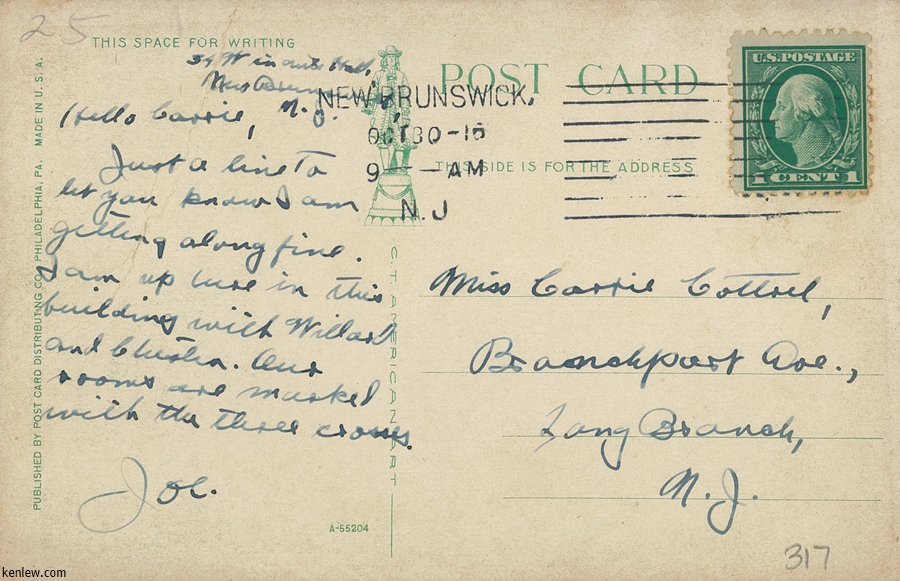 25
THIS SPACE FOR WRITING
39 Winants Hall,
New Bruns
N. J.
Hello Carrie,
Just a line to
let you know I am
getting along fine.
I am up here in this
building with Willard
and Chester. Our
rooms are marked
with the three crosses.
Joe.
PUBLISHED BY POST CARD DISTRIBUTING CO., PHILADELPHIA, PA. MADE IN U. S. A.
C. T. AMERICAN ART
A-55204
POST CARD
THIS SIDE IS FOR THE ADDRESS
NEW BRUNSWICK,
OCT 30-15
9 — AM
N.J
U.S. POSTAGE
1 CENT 1
Miss Carrie Cottrel,
Branchport Ave.,
Long Branch,
N. J.
317
kenlew.com